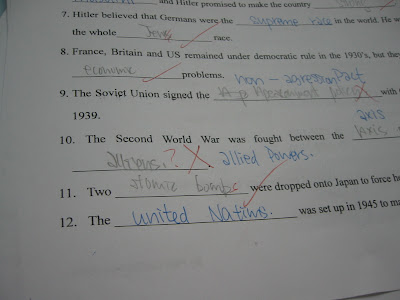 and Hitler promised to make the country
7. Hitler believed that Germans were the supreme race in the world. He w
the whole Jews race.
8. France, Britain and US remained under democratic rule in the 1930's, but the
economic problems. non - agression Pact
9. The Soviet Union signed the Appeasement policy with
1939.
axis
10. The Second World War was fought between the axis,
? allied Powers.
11. Two atomic bombs were dropped onto Japan to force he
12. The united Nations. was set up in 1945 to ma